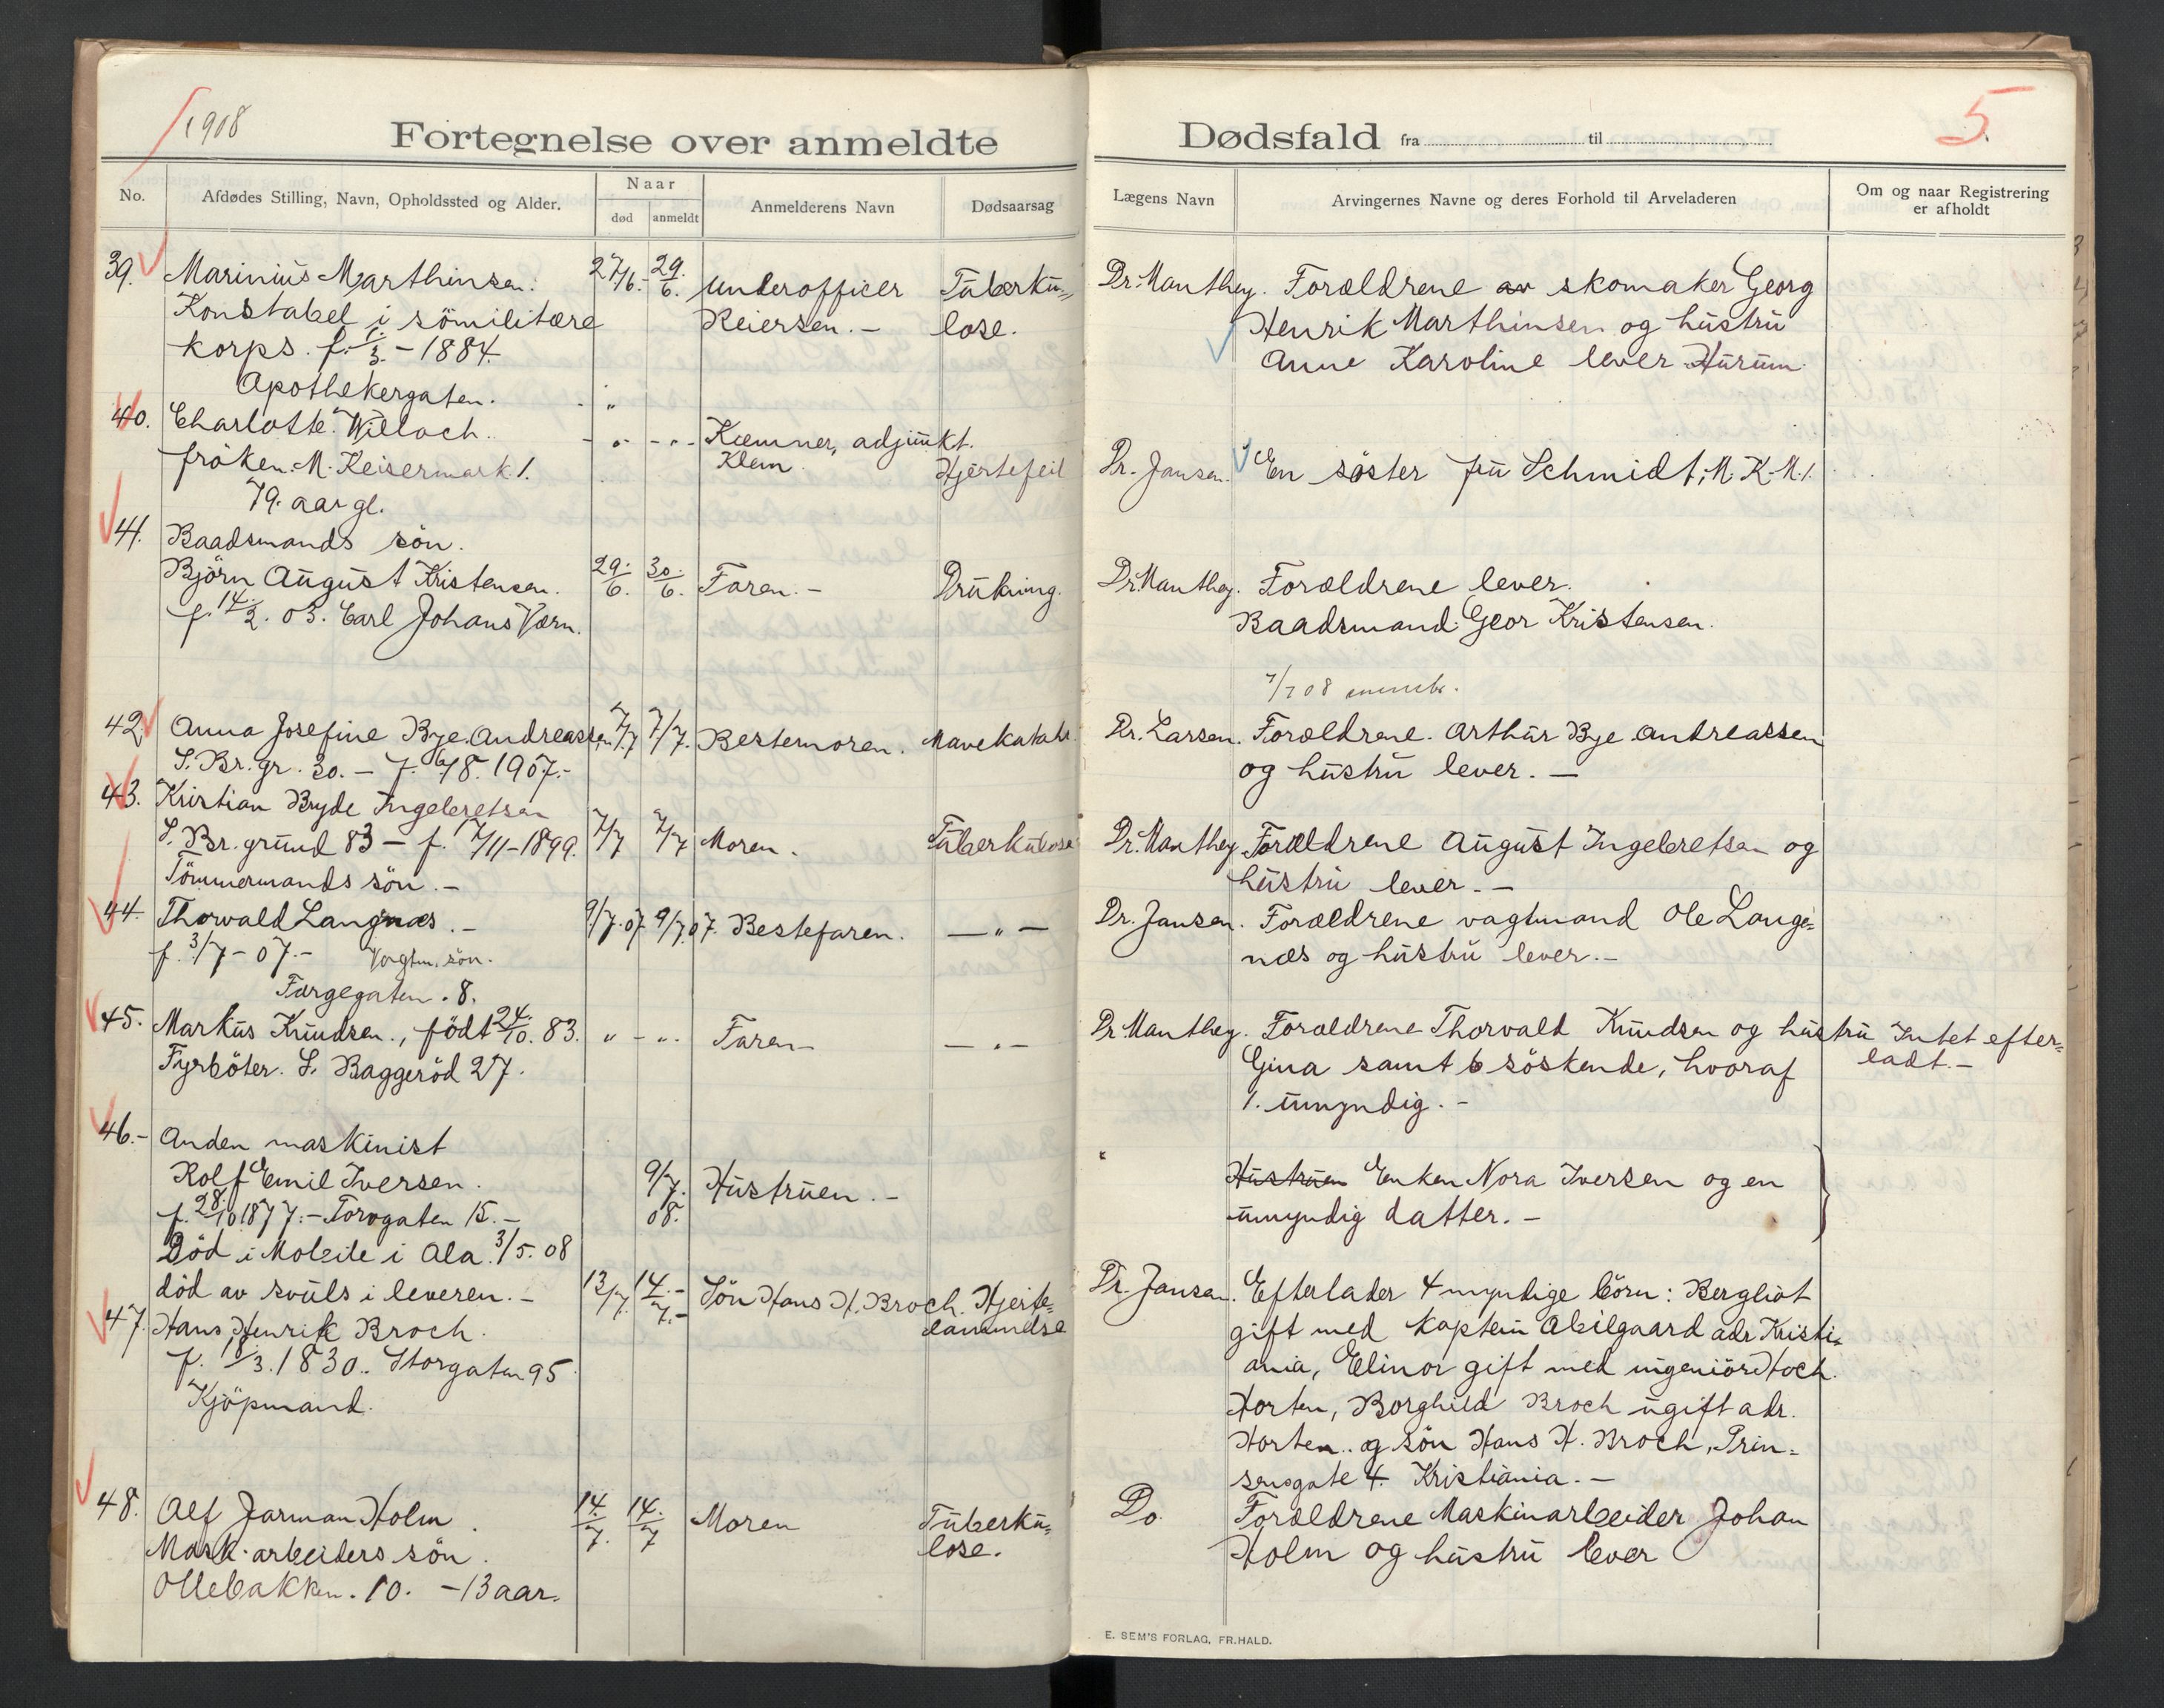 1908
Fortegnelse over anmeldte Dødsfald fra til
5.
No. Afdødes Stilling, Navn, Opholdssted og Alder. Naar død anmeldt Anmelderens Navn Dødsaarsag Lægens Navn Arvingernes Navne og deres Forhold til Arveladeren Om og naar Registrering er afholdt
39. Marinius Marthinsen. 27/6. 29./6. Underofficer Tuberku- Dr. Manthey. Forældrene av skomaker Georg
Konstabel i sömilitære Reiersen. - lose. Henrik Marthinsen og hustru
korps. f. 1./3. - 1884. Anne Karoline lever Hurum.
Apothekergaten.
40. Charlotte Willoch. - " - - " - Kæmner, adjunkt.
fröken. M. Keisermark 1. Klem. Hjertefeil Dr. Jansen. En söster fru Schmidt, M. K. M. 1.
79. aar gl.
41. Baadsmands sön.
Björn August Kristensen. 29./6. 30./6. Faren. - Drukning. Dr. Manthey. Forældrene lever.
f. 14./2. 03. Carl Johans Værn. Baadsmand: Geor Kristensen.
7/7 08
42. Anna Josefine Bye. Andreassen 7/7. 7/7. Bestemoren. Mavekatahr Dr. Larsen. Forældrene. Arthur Bye Andreassen
S. Br. gr. 30. - f. 16/8. 1907. - og hustru lever. -
43. Kristian Bryde Ingebretsen
S. Br. grund 83 - f. 17/11 - 1899. 7/7 7/7 Moren. Tuberkulose Dr. Manthey Forældrene August Ingebretsen og
Tömmermands sön. - hustru lever. -
44. Thorvald Langnæs. - 9/7. 07 9/7. 07. Bestefaren. - " - Dr. Jansen. Forældrene vagtmand Ole Lange-
f. 3/7 - 07. - Vagtm. sön. næs og hustru lever. -
Fargegaten. 8.
45. Markus Knudsen., födt 24./10. 83. " - " . Faren - - " - Dr. Manthey. Forældrene Thorvald Knudsen og hustru Intet efter-
Fyrböter. S. Baggeröd 27. Gina samt 6 söskende, hvoraf ladt. -
1. umyndig. -
46. - Anden maskinist
Rolf Emil Iversen. 9/7. 08. Hustruen. - Hustruen Enken Nora Iversen og en
f. 28./10 1877. - Torvgaten 15. - umyndig datter. -
Död i Mobile i Ala. 3/5. 08
död av svuls i leveren. - 13/7. 14. -/7. - Sön Hans H. Broch. Hjerte- Dr. Jansen. Efterlader 4 myndige börn: Bergliot
47. Hans Henrik Broch. lammelse gift med kaptein Abilgaard adr Kristi-
f. 18./3. 1830. Storgaten 95 ania, Elinor gift med ingeniör Hoch.
Kjöpmand. Horten, Borghild Broch ugift adr.
Horten. og sön Hans H. Broch, Prin-
sensgate 4. Kristiania. -
48. Alf Jarman Holm. 14./7. 14./7 Moren Tuberku- Do Forældrene Maskinarbeider Johan
Mask. arbeiders sön. lose. Holm og hustru lever
Ollebakken. 10. - 13 aar.
E. SEM'S FORLAG, FR.HALD.